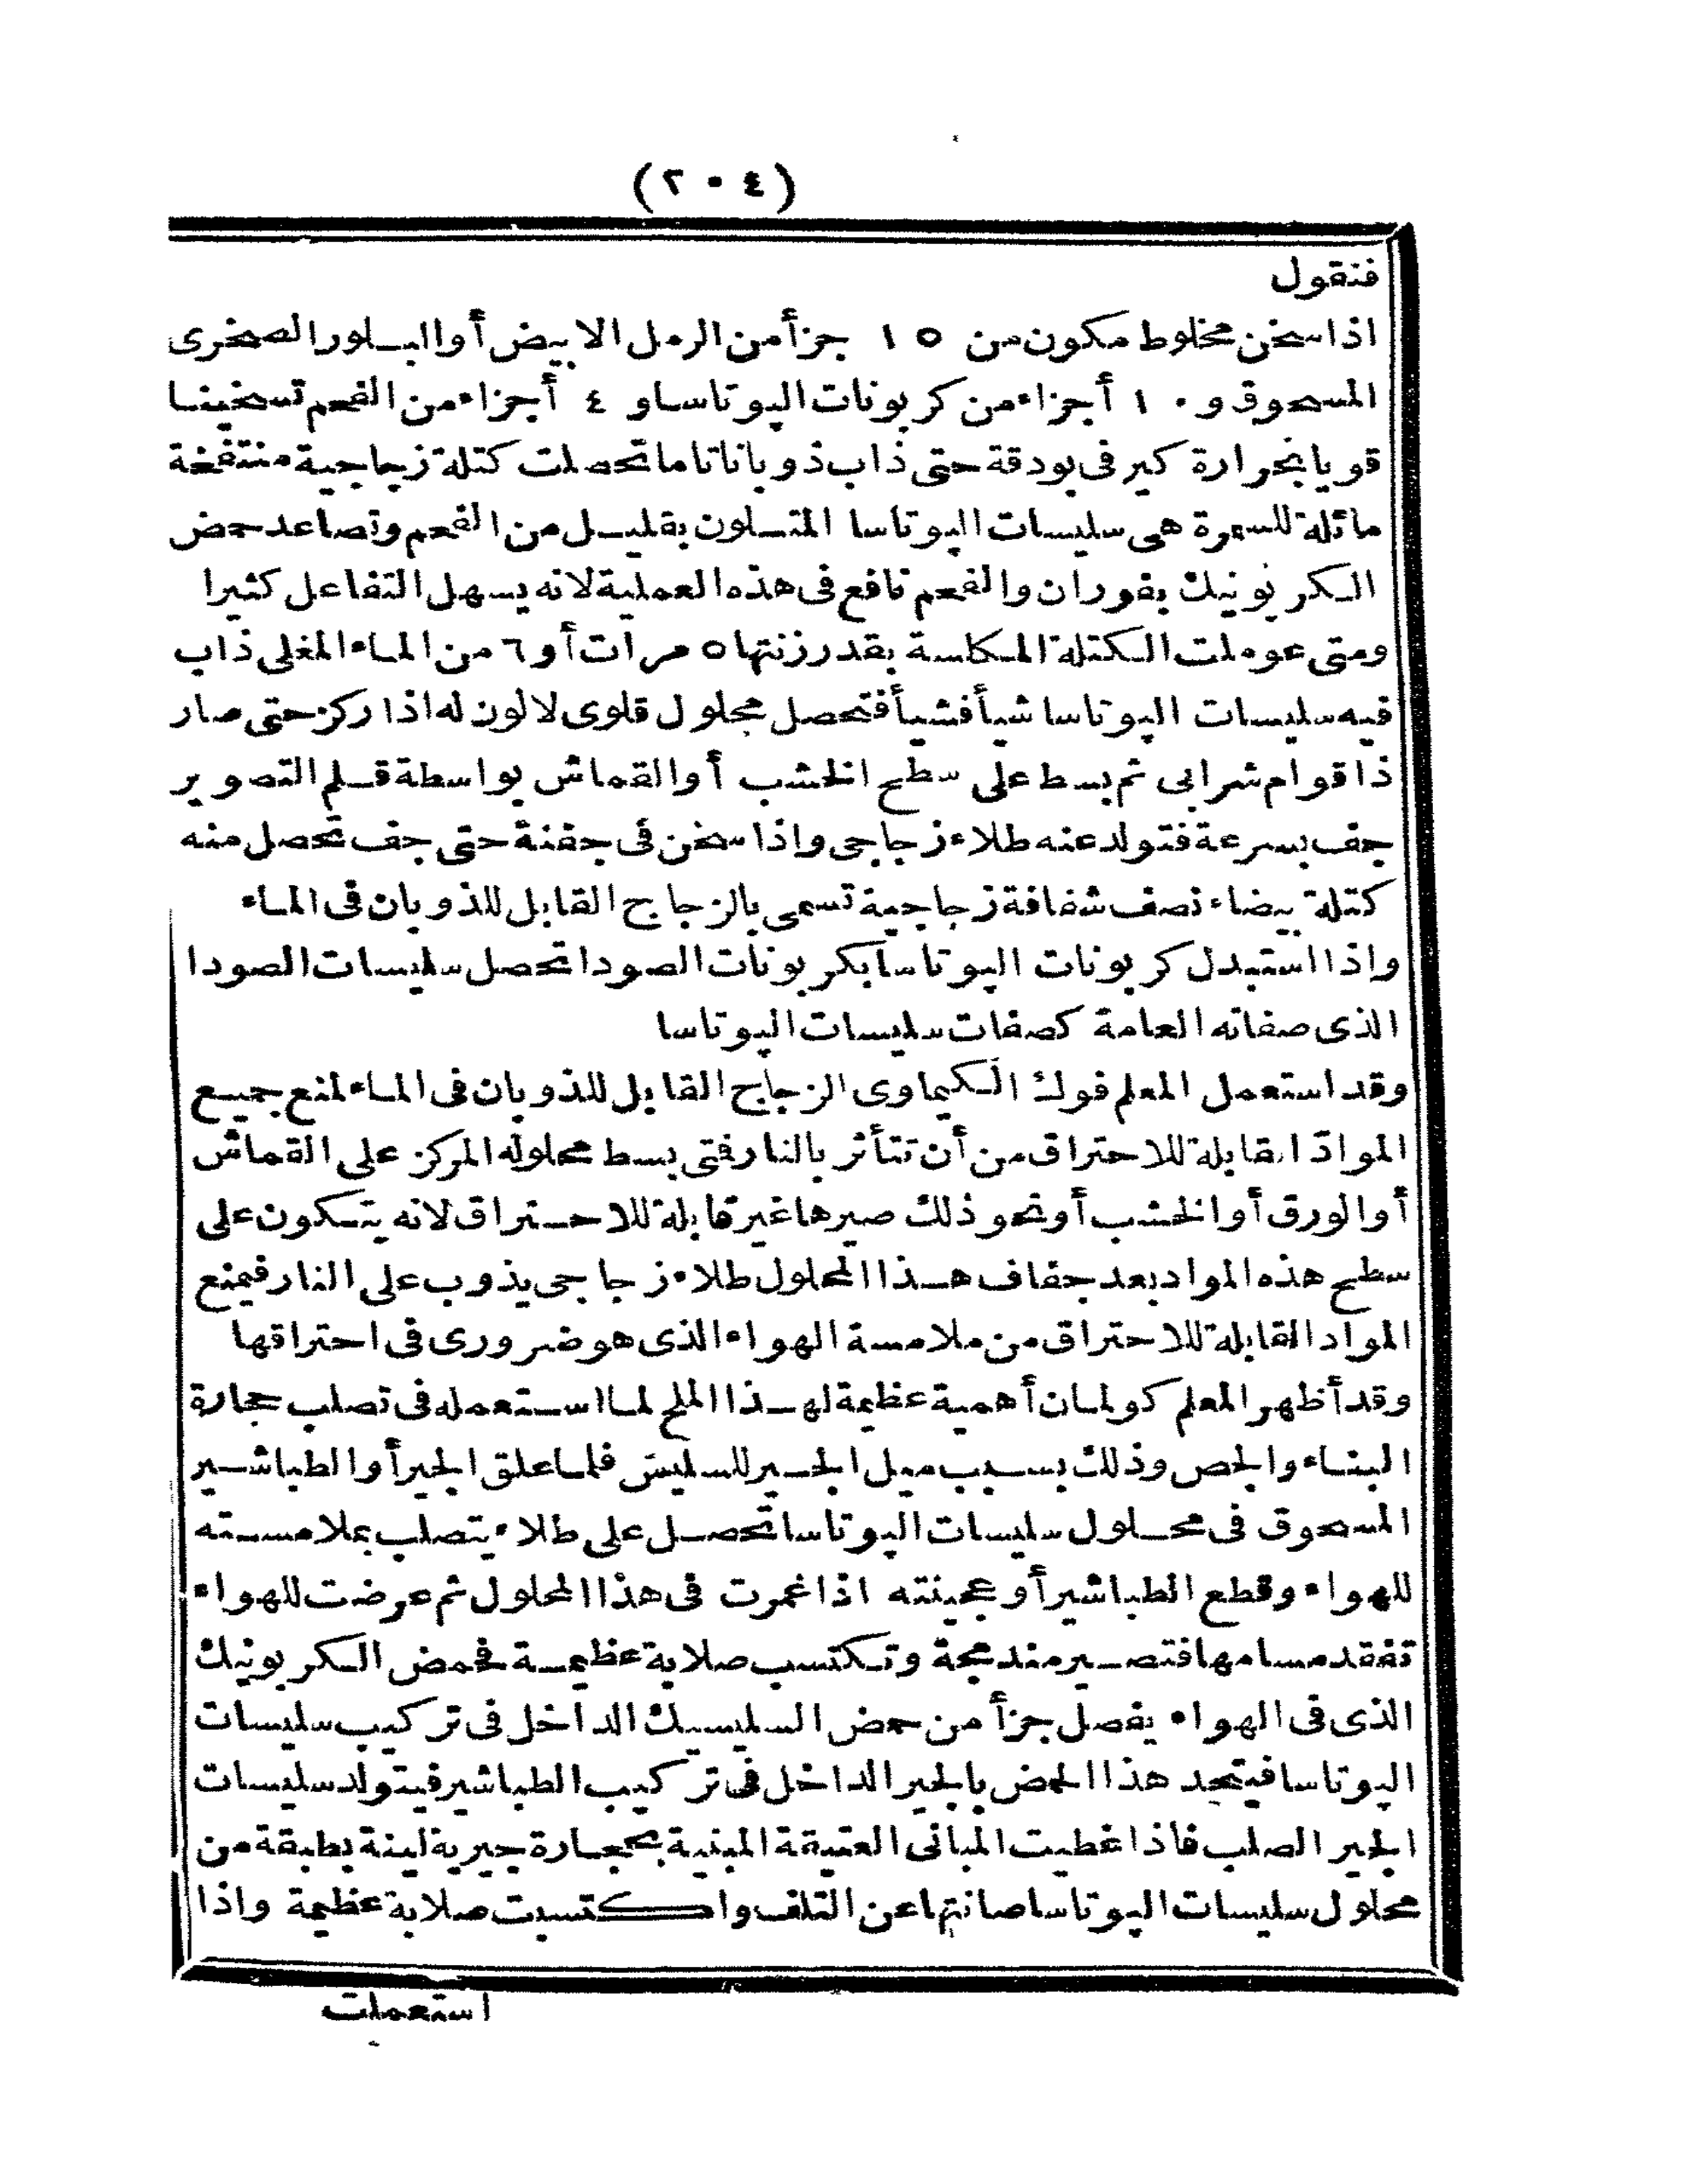 (٢٠٤)
فنقول
اذا سخن مخلوط مكون من ١٥ جزأ من الرمل الابيض أو البلور الصخرى
المسحوق و ١٠ أجزاء من كربونات البوتاسا و ٤ أجزاء من الفحم تسخينا
قويا بحرارة كير فى بودقة حتى ذاب ذوبانا تاما تحصلت كتلة زجاجية منتفخة
مائلة للسمرة هى سليسات البوتاسا المتلون بقليل من الفحم وتصاعد حمض
الكربونيك بفوران والفحم نافع فى هذه العملية لانه يسهل التفاعل كثيرا
ومتى عوملت الكتلة المكلسة بقدر زنتها ٥ مرات أو ٦ من الماء المغلى ذاب
فيه سليسات البوتاسا شيأ فشيأ فتحصل محلول قلوى لا لون له اذا ركز حتى صار
ذا قوام شرابى ثم بسط على سطح الخشب أو القماش بواسطة قلم التصوير
جف بسرعة فتولد عنه طلاء زجاجى واذا سخن فى جفنة حتى جف تحصل منه
كتلة بيضاء نصف شفافة زجاجية تسمى بالزجاج القابل للذوبان فى الماء
واذا استبدل كربونات البوتاسا بكربونات الصودا تحصل سليسات الصودا
الذى صفاته العامة كصفات سليسات البوتاسا
وقد استعمل المعلم فوك الكيماوى الزجاج القابل للذوبان فى الماء لمنع جميع
الموادّ القابلة للاحتراق من أن تتأثر بالنار فتى بسط محلوله المركز على القماش
أو الورق أو الخشب أو نحو ذلك صيرها غير قابلة للاحتراق لانه يتكون على
سطح هذه المواد بعد جفاف هذا المحلول طلاء زجاجى يذوب على النار فيمنع
المواد القابلة للاحتراق من ملامسة الهواء الذى هو ضرورى فى احتراقها
وقد أظهر المعلم كولمان أهمية عظيمة لهذا الملح لما استعمله فى تصلب حجارة
البناء والجص وذلك بسبب ميل الجير للسليس فلما علق الجير أو الطباشير
المسحوق فى محلول سليسات البوتاسا تحصل على طلاء يتصلب بملامسته
للهواء وقطع الطباشير أو عجينته اذا غمرت فى هذا المحلول ثم عرضت للهواء
تفقد مسامها فتصير مندمجة وتكتسب صلابة عظيمة فحمض الكربونيك
الذى فى الهواء يفصل جزأ من حمض السليسيك الداخل فى تركيب سليسات
البوتاسا فيتحد هذا الحمض بالجير الداخل فى تركيب الطباشير فيتولد سليسات
الجير الصلب فاذا غطيت المبانى العتيقة المبنية بحجارة جيرية لينة بطبقة من
محلول سليسات البوتاسا صانتها عن التلف واكتسبت صلابة عظيمة واذا
استعملت